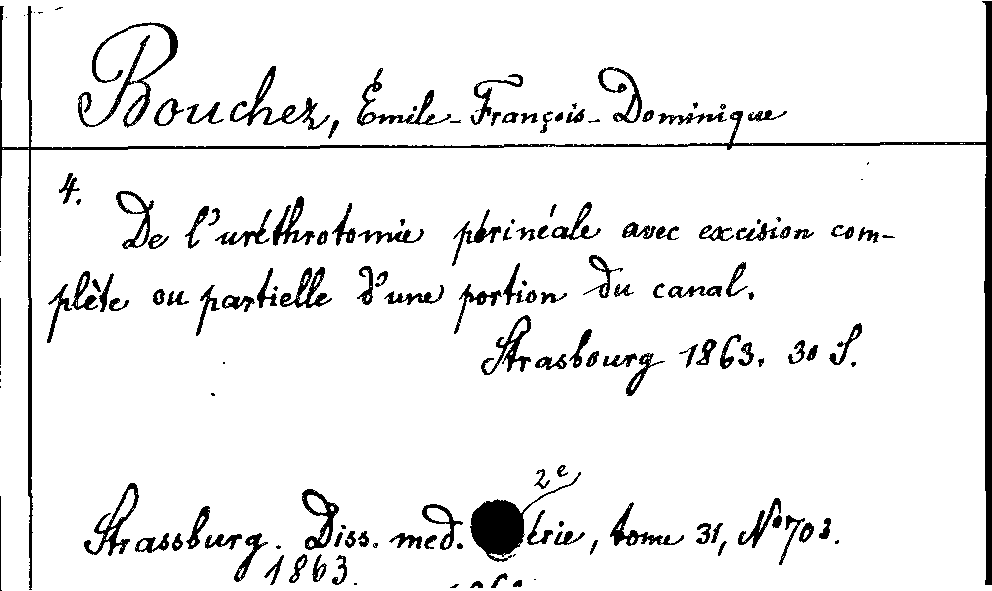 Bouchez, Émile-François-Dominique
4.
De l'uréthrotomie périnéale avec excision com-
plète ou partielle d'une portion du canal.
Strasbourg 1863. 30 S.
2e
Strassburg. Diss. med. érie, tome 31, No 703.
1863.